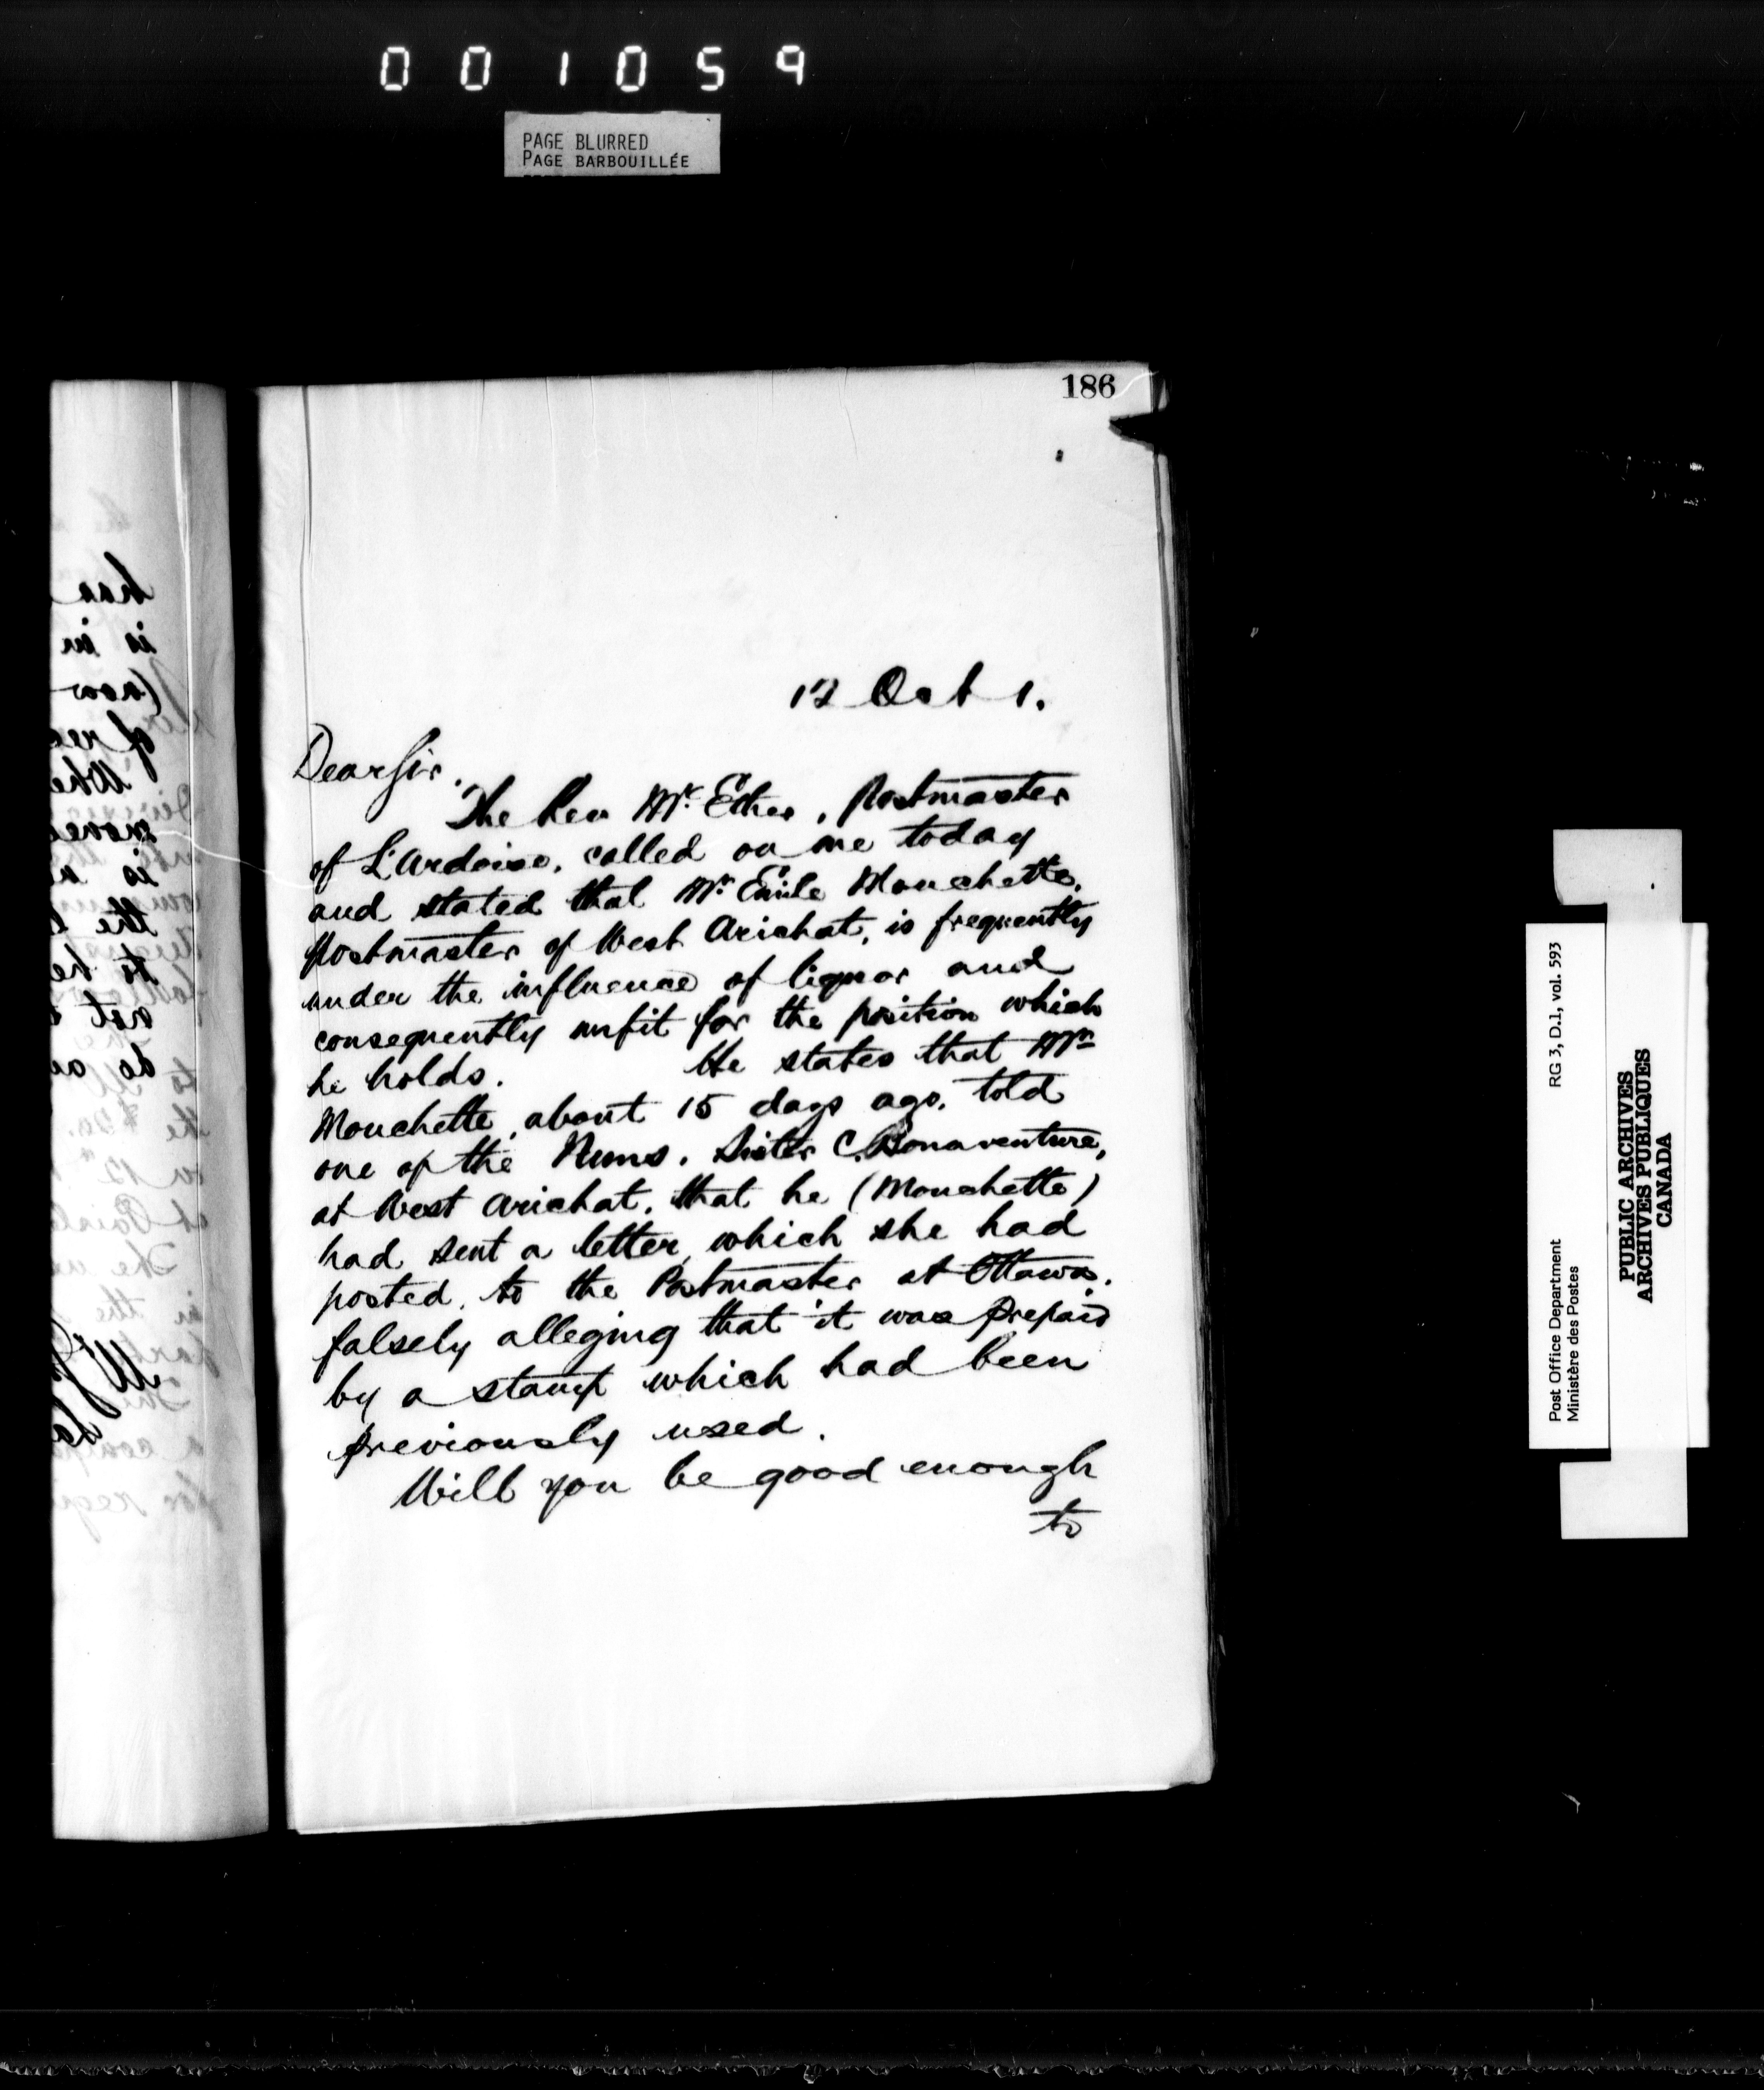 001059
PAGE BLURRED
PAGE BARBOUILLÉE
186
12 Oct 1.
Dear Sir,
The Rev Mr. Ethes, Postmaster
of L'Ardoise, called on me today
and stated that Mr. Emile Mouchette,
Postmaster of West Arichat, is frequently
under the influence of liquor and
consequently unfit for the position which
he holds. He states that Mr
Mouchette, about 15 days ago, told
one of the Nuns, Sister C. Bonaventure,
at West Arichat, that he (Mouchette)
had sent a letter, which she had
posted, to the Postmaster at Ottawa,
falsely alleging that it was prepaid
by a stamp which had been
previously used.
Will you be good enough
to
Post Office Department
Ministère des Postes
RG 3, D.1, vol. 593
PUBLIC ARCHIVES
ARCHIVES PUBLIQUES
CANADA